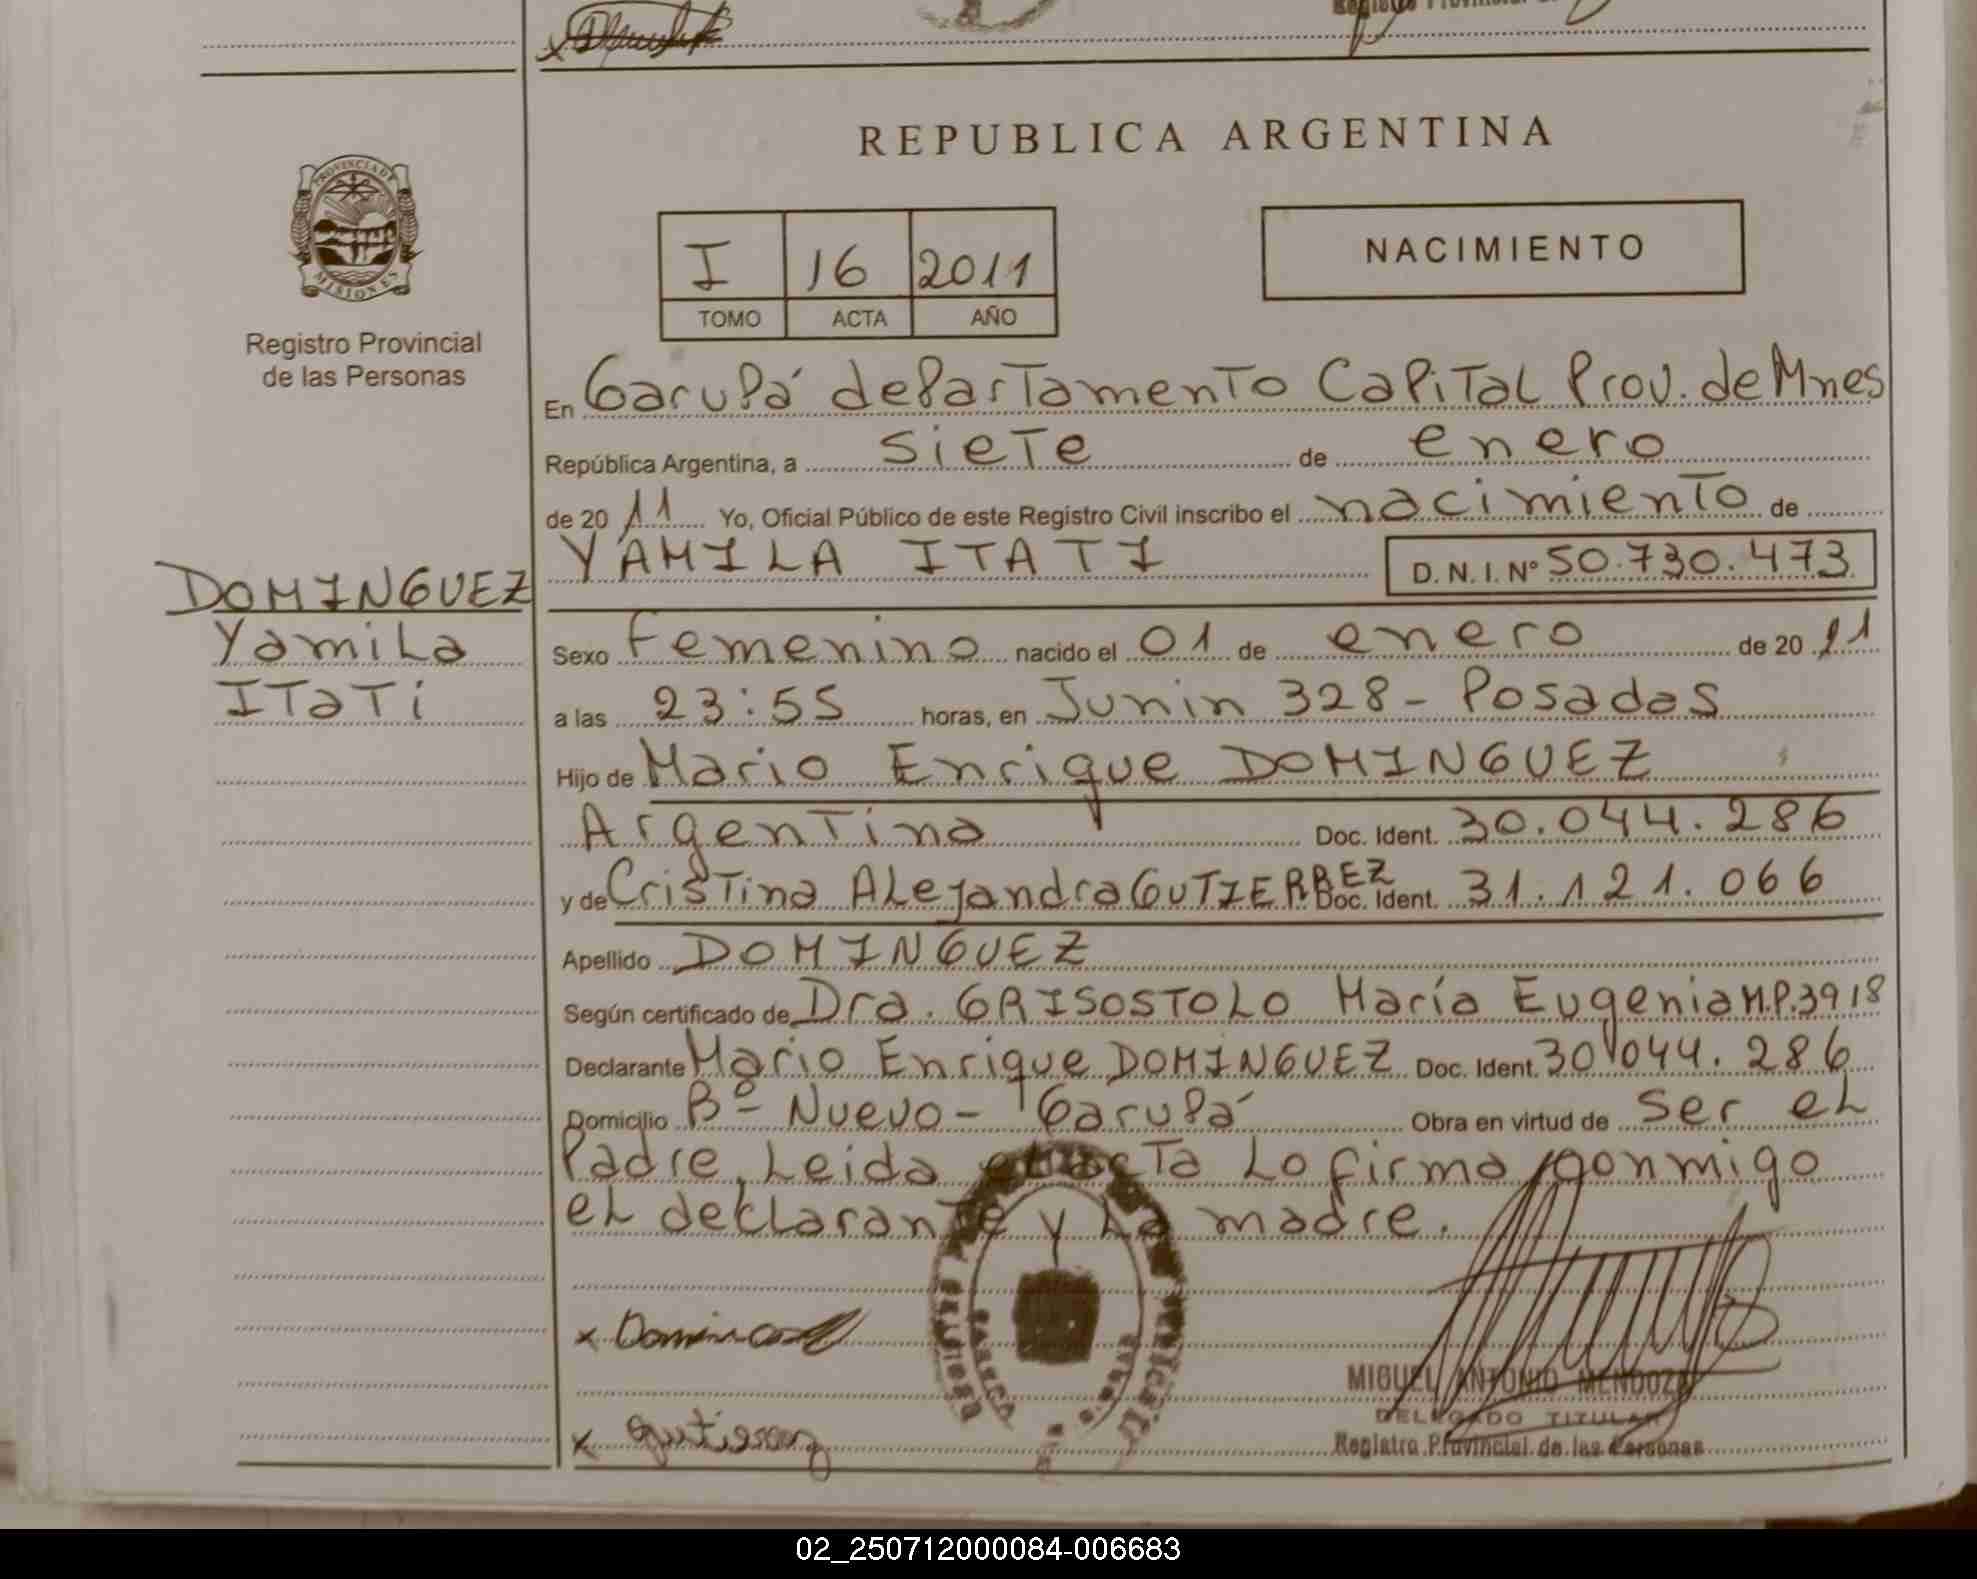 REPUBLICA ARGENTINA
PROVINCIA DE MISIONES
Registro Provincial
de las Personas
I 16 2011
TOMO ACTA AÑO
NACIMIENTO
En Garupá departamento Capital Prov. de Mnes
República Argentina, a siete de enero
de 2011 Yo, Oficial Público de este Registro Civil inscribo el nacimiento de
YAMILA ITATI D.N.I. Nº 50.730.473
DOMINGUEZ
Yamila
Itati
Sexo Femenino nacido el 01 de enero de 2011
a las 23:55 horas, en Junin 328 - Posadas
Hijo de Mario Enrique DOMINGUEZ
Argentina Doc. Ident. 30.044.286
y de Cristina Alejandra GUTIERREZ Doc. Ident. 31.121.066
Apellido DOMINGUEZ
Según certificado de Dra. GRISOSTOLO María Eugenia M.P.3918
Declarante Mario Enrique DOMINGUEZ Doc. Ident. 30.044.286
Domicilio Bº - Nuevo - Garupá Obra en virtud de ser el
Padre, Leida el acta Lo firma conmigo
el declarante y La madre.
x Dominguez
x Gutierrez
MIGUEL ANTONIO MENDOZA
DELEGADO TITULAR
Registro Provincial de las Personas
02_250712000084-006683